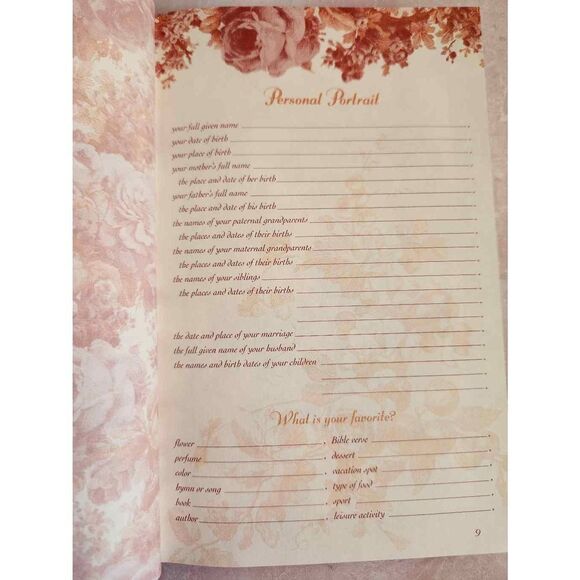 Personal Portrait
your full given name
your date of birth
your place of birth
your mother's full name
the place and date of her birth
your father's full name
the place and date of his birth
the names of your paternal grandparents
the places and dates of their births
the names of your maternal grandparents
the places and dates of their births
the names of your siblings
the places and dates of their births
the date and place of your marriage
the full given name of your husband
the names and birth dates of your children
What is your favorite?
flower Bible verse
perfume dessert
color vacation spot
hymn or song type of food
book sport
author leisure activity
9